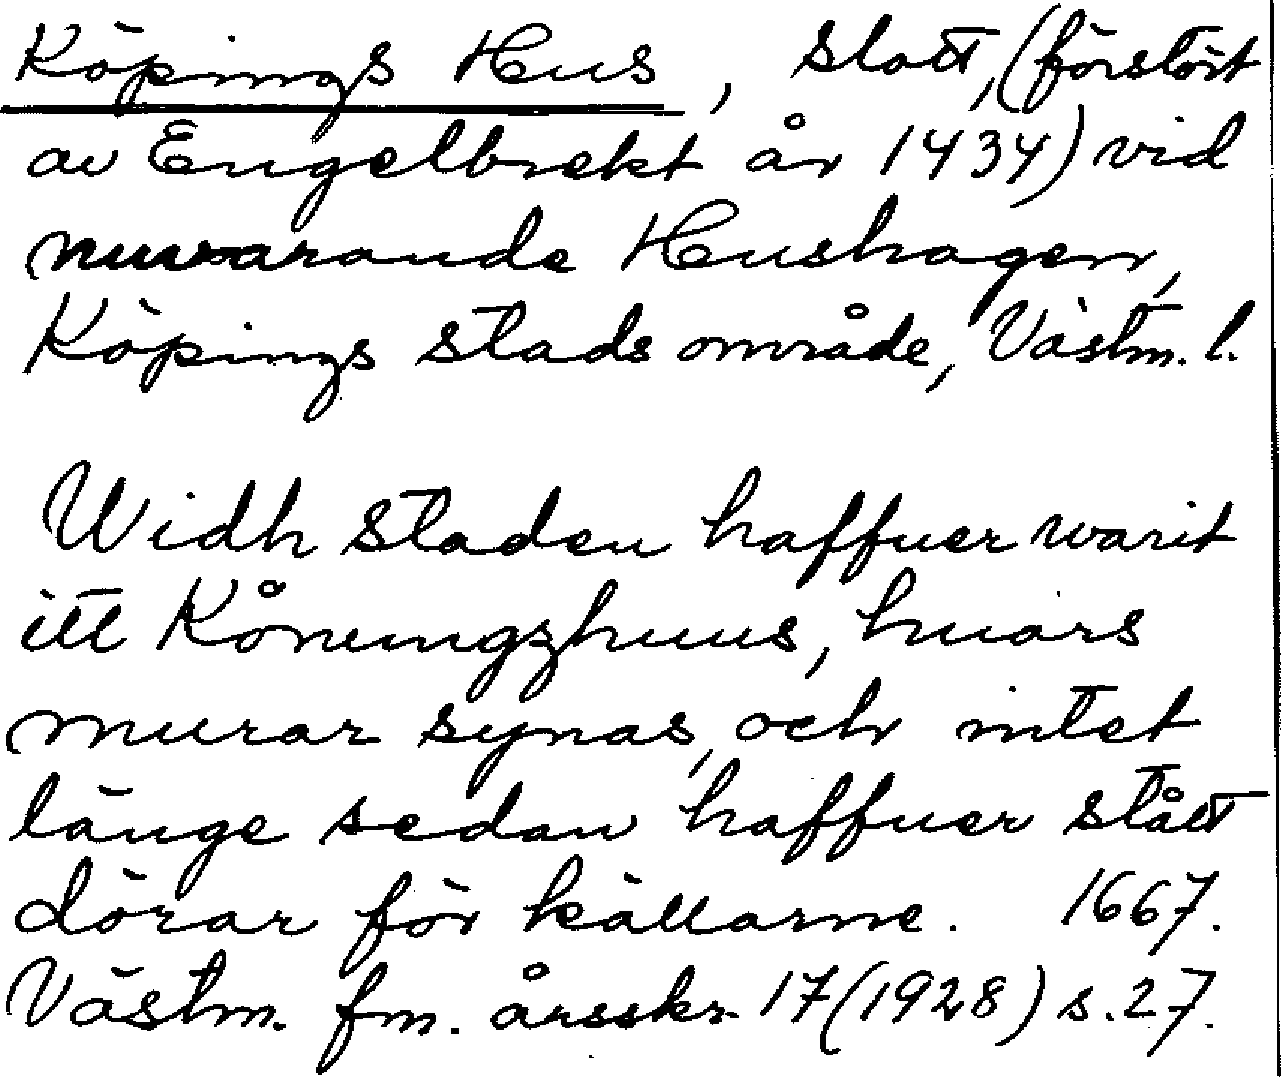 Köpings Hus, slott, (förstört
av Engelbrekt år 1434) vid
nuvarande Hushagen,
Köpings stads område, Västm. l.
Widh staden haffuer warit
itt Kåningzhuus, huars
murar synas, och intet
länge sedan haffuer stått
dörar för källarne. 1667.
Västm. fm. årsskr. 17 (1928) s. 27.